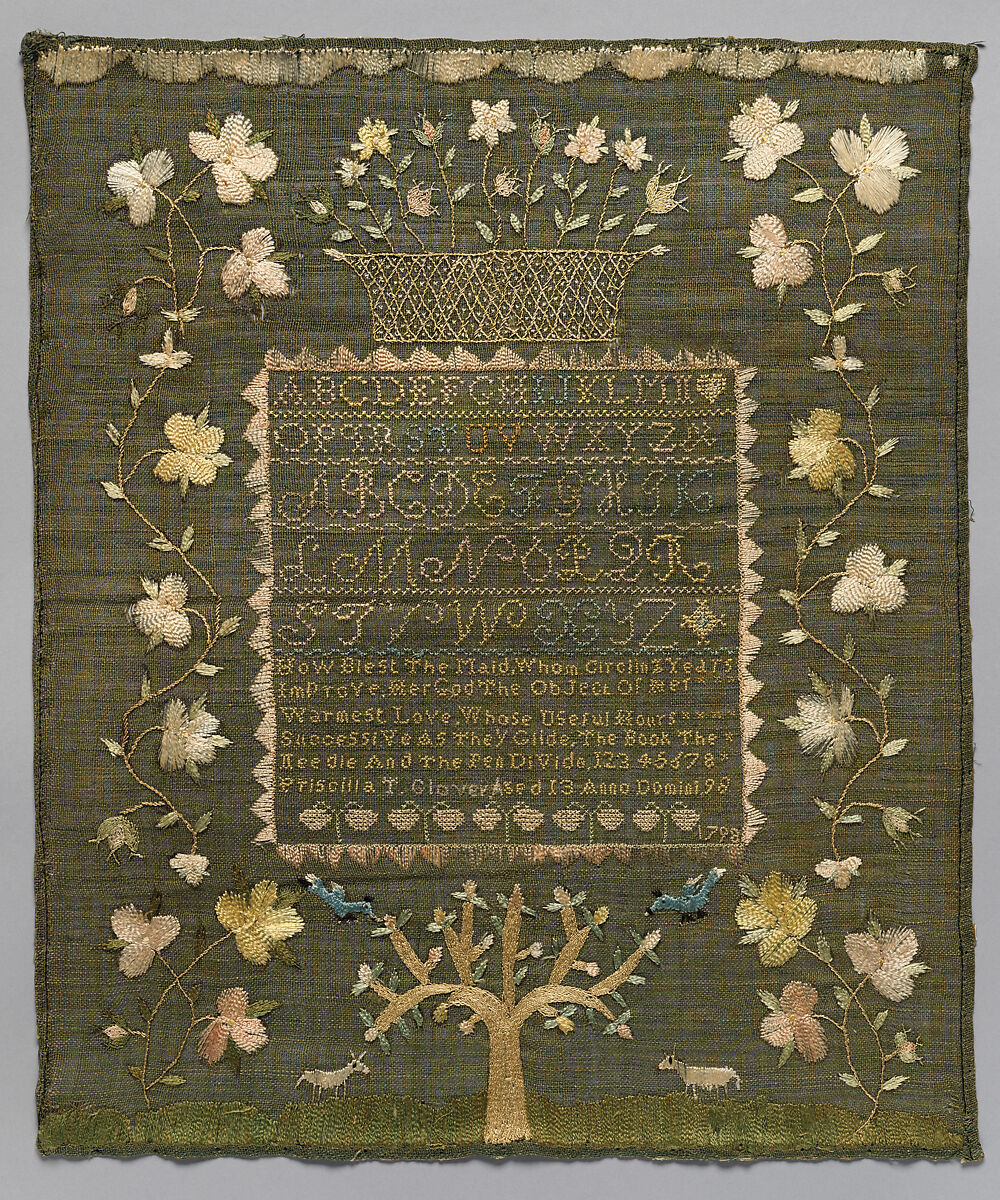 ABCDEFGHIJKLMN
OPQRSTUVWXYZ&
ABCDEFGHIK
LMNOPQR
STVWXYZ
How Blest The Maid, Whom Circling Years
Improve, Her God The Object Of Her
Warmest Love, Whose Useful Hours
Successive As They Glide, The Book The
Needle And The Pen Divide. 12345678
Priscilla T. Glover Aged 13 Anno Domini 98
1798